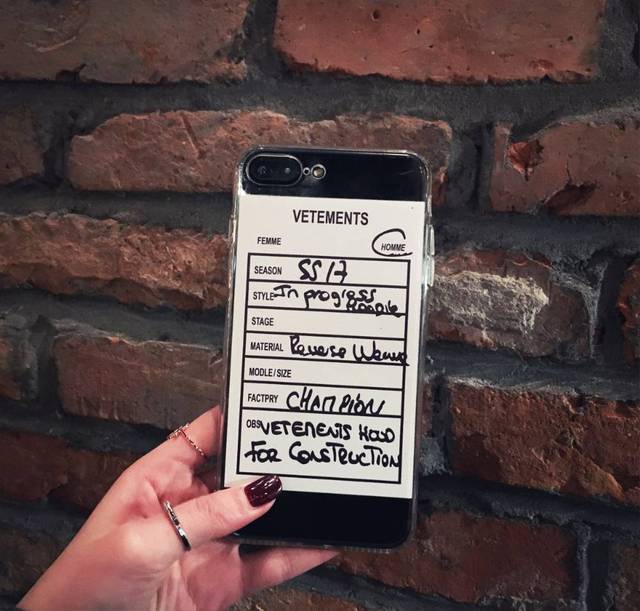 VETEMENTS
FEMME HOMME
SEASON SS17
STYLE In progress
STAGE
MATERIAL Reverse Weave
MODLE/SIZE
FACTPRY CHAMPION
OBS VETEMENTS HOOD
FOR CONSTRUCTION